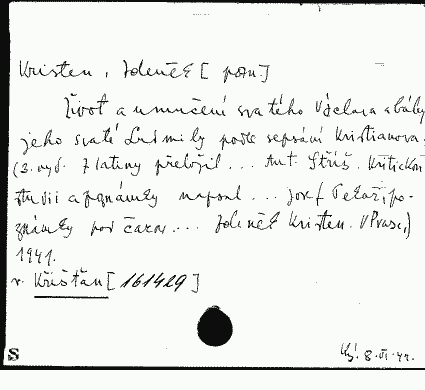 Kristen, Zdeněk [pozn.]
Život a umučení svatého Václava a báby
jeho svaté Ludmily podle sepsání Kristianova.
(2. vyd. Z latiny přeložil... Ant. Stříž. Kritickou
studii a poznámky napsal... Josef Pekař, po-
známky pod čarou... Zdeněk Kristen. V Praze,)
1941.
v. Křišťan [161429]
8.VI.42.
S